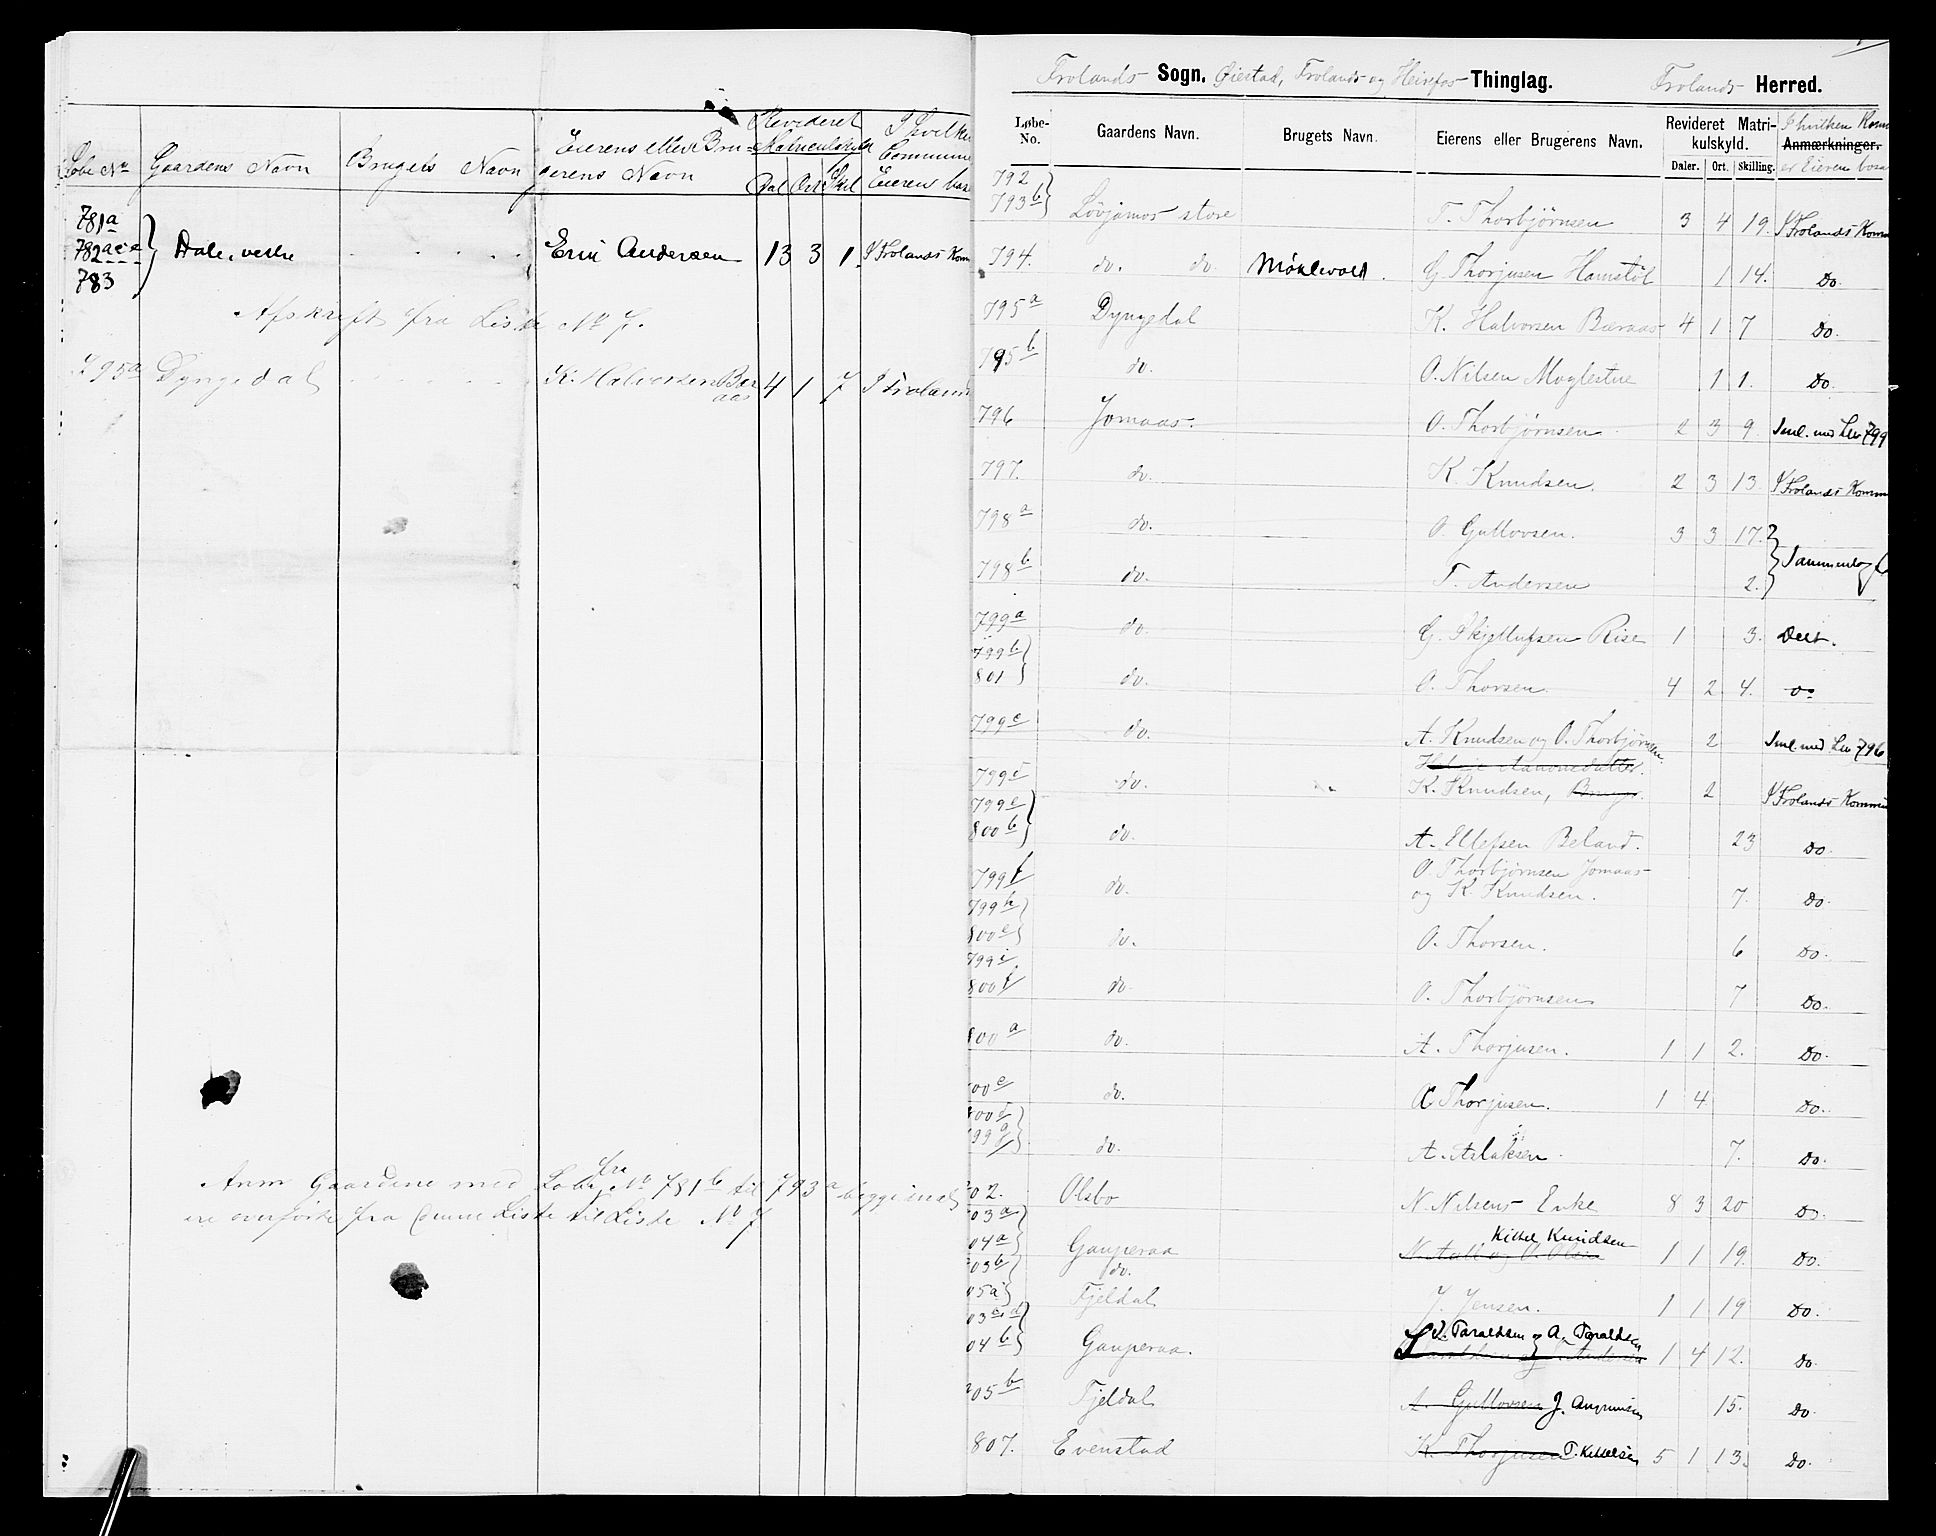 Løbe No Gaardens Navn Brugets Navn Eierens eller Bru-gerens Navn Revideret Matriculskyld Dal Ort Skil I hvilken Commune Eierens
781a
782 a c e Dale, vestre Erik Andersen 13 3 1 I Frolands Kom
783
Afskrift fra Liste No 7.
795a Dyngedal K. Halvorsen Bær aas 4 1 7 I Froland
Anm Gaardene med Løbe No fra 781b til 793a begge incl
ere overførte fra denne Liste til Liste No 7
Frolands Sogn. Øiestad, Frolands og Heirefos Thinglag. Frolands Herred.
Løbe-No. Gaardens Navn. Brugets Navn. Eierens eller Brugerens Navn. Revideret Matri-kulskyld. Daler. Ort. Skilling. I hvilken Kom Anmærkninger. er Eieren bosa
792
793b Løvjomos store T. Thorbjørnsen 3 4 19. I Frolands Kom
794. do. do. G. Thorjusen Hamstøl 1 14. Do.
795a Dyngedal K. Halvorsen Bæraas 4 1 7 Do.
795b do. O. Nilsen Moglestue 1 1. Do.
796 Jomaas. O. Thorbjørnsen 2 3 9. Sml. med Lnr 799
797. do. K. Knudsen. 2 3 13. I Frolands Kommu
798a do. O. Gullovsen. 3 3 17.
798b do. T. Andersen 2. Sammenlag
799a do. G. Skjellufsen Rise 1 3. Do.
799b
801 do. O. Thorsen. 4 2. 4. do
799c do. A. Knudsen og O. Thorbjørnsen. 2 Sml. med Lnr 796
799d do. K. Knudsen, 2 I Frolands Kommun
799e
800b do. A. Ellefsen Beland. 23 Do.
799f do. O. Thorbjørnsen Jomaas
og K. Knudsen. 7. Do.
799h
800e do. O. Thorsen. 6 Do.
799i
800f do. O. Thorbjørnsen 7 Do.
800a do. A. Thorjusen. 1 1 2. Do.
00c do. A. Thorjusen. 1 4 Do.
800d
799g do. A. Aslaksen. 7. Do.
02. Olsbo N. Nilsens Enke 8 3 20 Do.
03a
04a Gauperaa Kittel Knudsen 1 1 19. Do.
03b do.
05a Fjeldal J. Jensen. 1 1 19 Do.
03c d
04b Gauperaa. Taraldsen og A. Taraldsen 1 4 12. Do.
05b Fjeldal A. Gullovsen J. 15. Do.
807. Evenstad K. Thorjusen T. Kittelsen 5 1 13. Do.